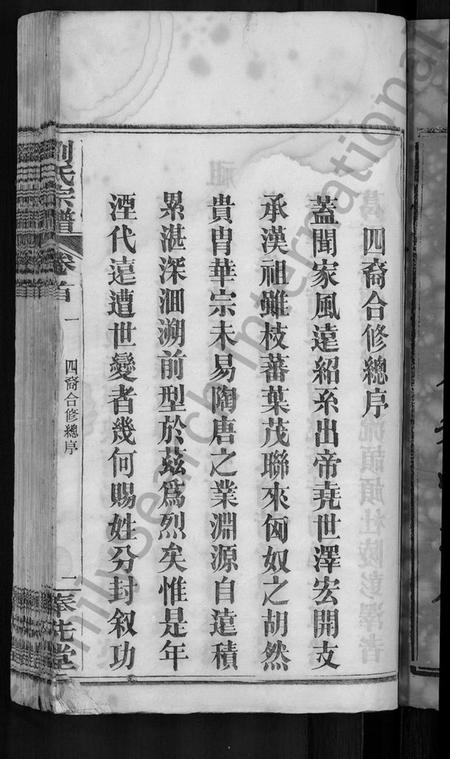 四裔合修總序
蓋聞家風遠紹系出帝堯世澤宏開支
承漢祖雖枝蕃葉茂聯來匈奴之胡然
貴胄華宗未易陶唐之業淵源自遠積
累湛深洄溯前型於茲爲烈矣惟是年
湮代遠遭世變者幾何賜姓分封叙功
劉氏宗譜
卷首
一
四裔合修總序
一
Familysearch International